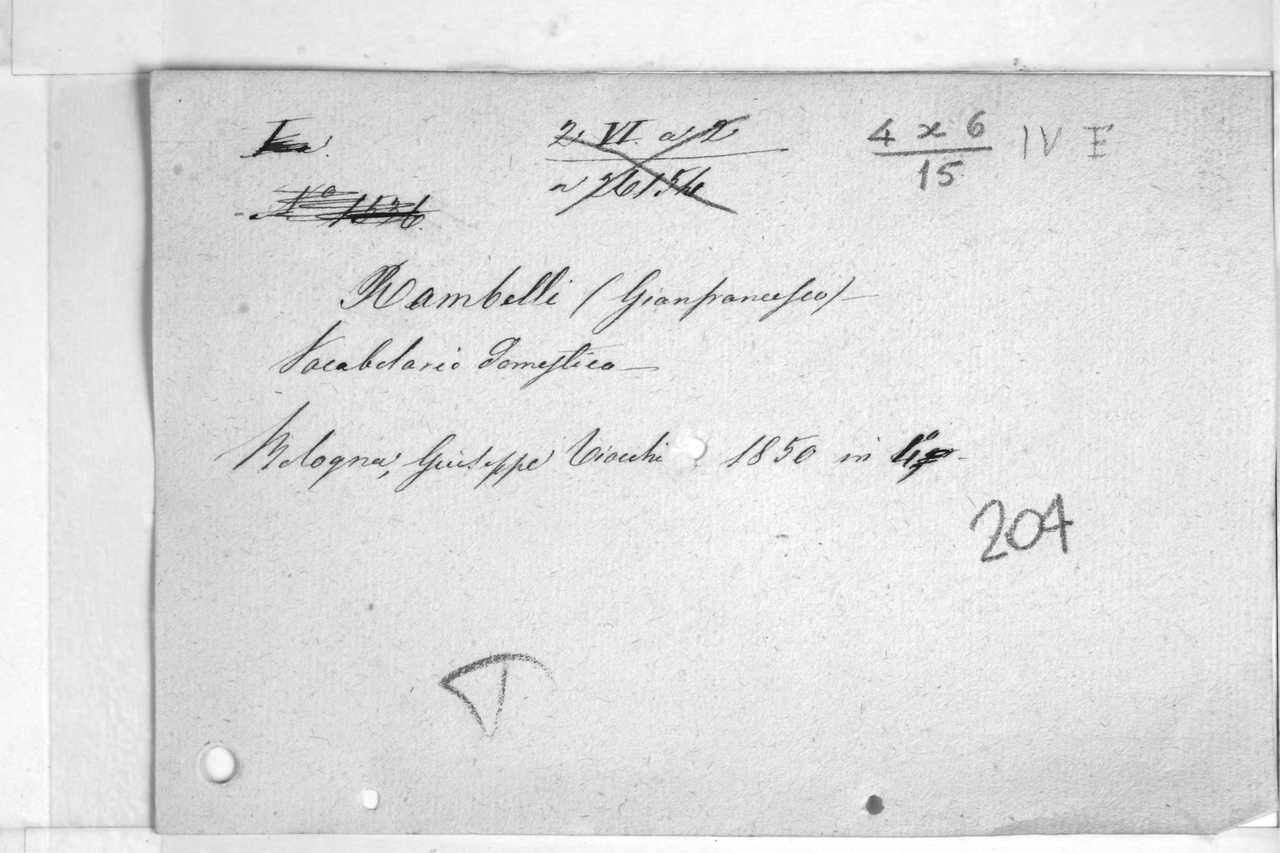 2. VI. a 2
4 x 6 IV E
15
No 1536.
Rambelli (Gianfrancesco) —
Vocabolario Domestico —
Bologna, Giuseppe Tiocchi 1850 in 4o
204